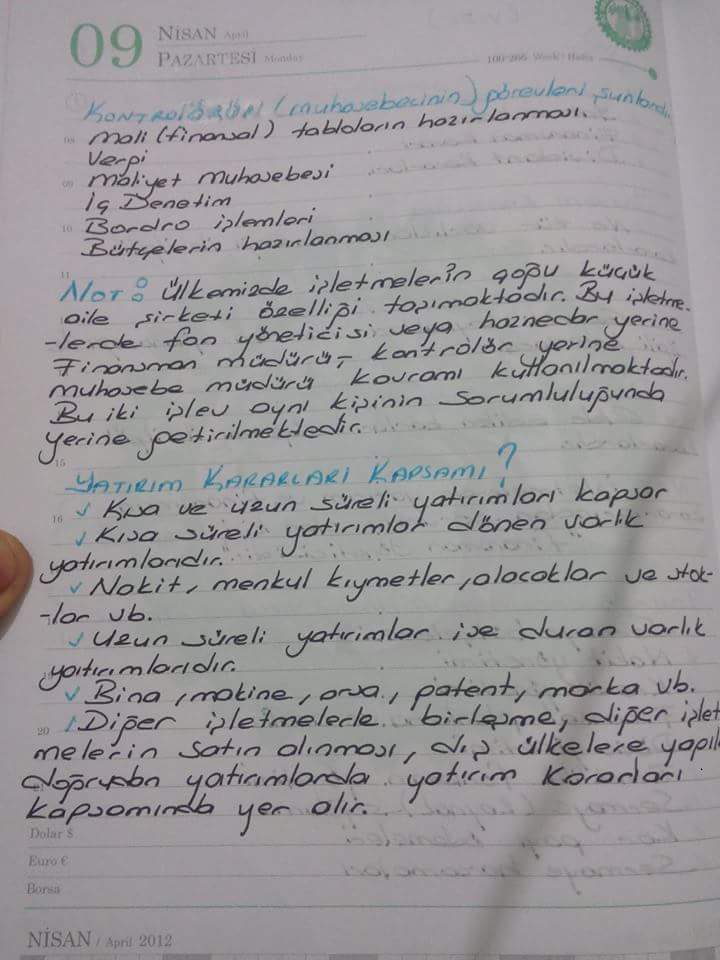 09 NİSAN April
PAZARTESİ Monday
100-266 Week / Hafta
KONTROLÖRÜN (muhasebecinin) görevleri şunlardır
08 Mali (finansal) tabloların hazırlanması.
Vergi
09 Maliyet Muhasebesi
İç Denetim
10 Bordro işlemleri
Bütçelerin hazırlanması
11
NOT: Ülkemizde işletmelerin çoğu küçük
aile şirketi özelliği taşımaktadır. Bu işletme-
-lerde fon yöneticisi veya haznedar yerine
Finansman müdürü, kontrolör yerine
muhasebe müdürü kavramı kullanılmaktadır.
Bu iki işlev aynı kişinin sorumluluğunda
yerine getirilmektedir.
15
YATIRIM KARARLARI KAPSAMI?
16 ✓ Kısa ve uzun süreli yatırımları kapsar
✓ Kısa süreli yatırımlar dönen varlık
yatırımlarıdır.
✓ Nakit, menkul kıymetler, alacaklar ve stok-
-lar vb.
✓ Uzun süreli yatırımlar ise duran varlık
yatırımlarıdır.
✓ Bina, makine, arsa, patent, marka vb.
20 ✓ Diğer işletmelerle birleşme, diğer işlet
melerin satın alınması, dış ülkelere yapıl
doğrudan yatırımlarda yatırım kararları
kapsamında yer alır.
Dolar $
Euro €
Borsa
NİSAN / April 2012